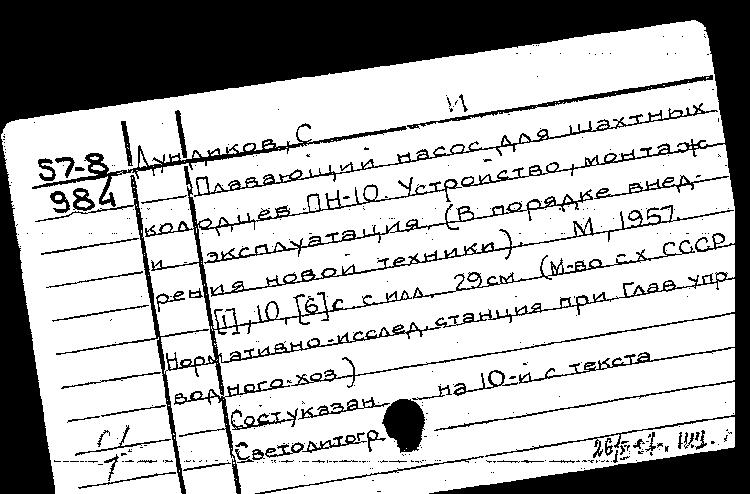 И
57-8
984
Лундиков, С
Плавающий насос для шахтных
колодцев ПН-10. Устройство, монтаж
и эксплуатация, (В порядке внед-
рения новой техники). М, 1957.
[1], 10, [6] с. с илл. 29 см. (М-во с.х СССР
Нормативно-исслед. станция при Глав упр
водного-хоз)
Сост указан на 10-й с текста
Светолитогр.